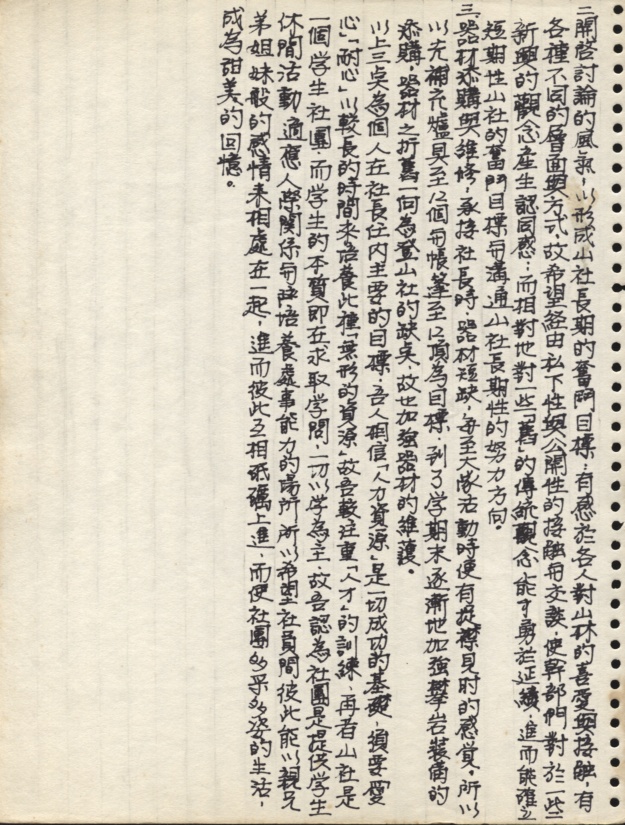 二開啓討論的風氣,以形成山社長期的奮鬥目標:有感於各人對山林的喜愛與接觸,有
各種不同的層面與方式,故希望經由私下性與公開性的接觸與交談,使幹部們對於一些
新興的觀念產生認同感;而相對地對一些「舊」的傳統觀念能才勇於延續,進而能確立
短期性山社的奮鬥目標與溝通山社長期性的努力方向。
三器材添購與維修,承接社長時,器材短缺,每至大隊活動時便有捉襟見肘的感覺,所以
以先補充爐具至12個與帳篷至12頂為目標,到了學期末逐漸地加強攀岩裝備的
添購,器材之折舊一向為登山社的缺点,故也加強器材的維護。
以上三点為個人在社長任內主要的目標,吾人相信「人力資源」是一切成功的基礎,須要愛
心「耐心」以較長的時間來培養此種「無形的資源」故吾較注重「人才」的訓練,再者山社是
一個学生社團,而学生的本質即在求取学問,一切以学為主,故吾認為社團是提供学生
休閒活動,適應人際關係與培養處事能力的場所,所以希望社員間彼此能以親兄
弟姐妹般的感情來相處在一起,進而彼此互相砥礪上進,而使社團多采多姿的生活,
成為甜美的回憶。